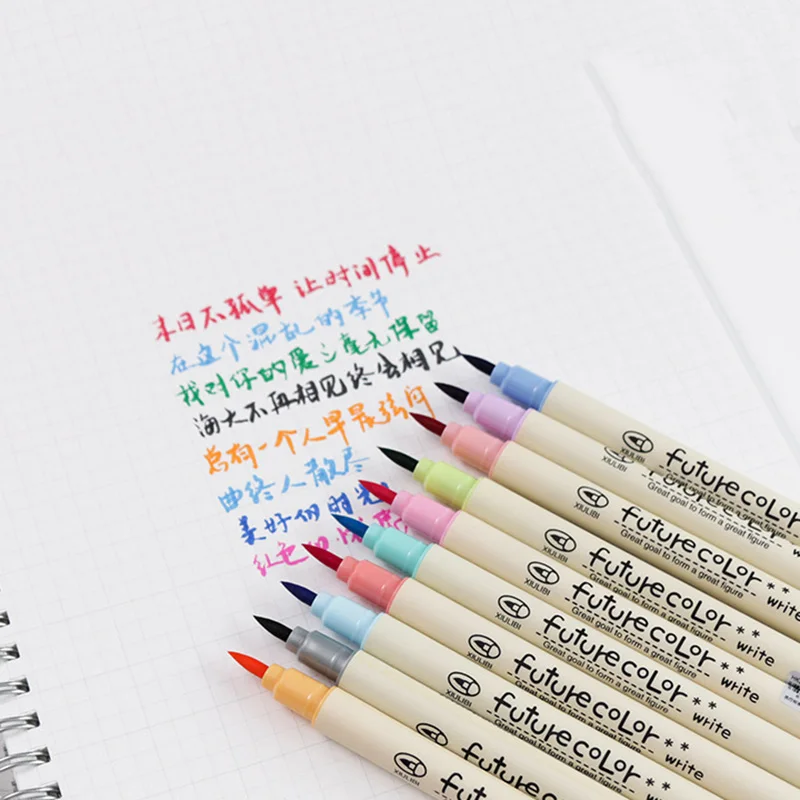 末日不孤单 让时间停止
在这个混乱的季节
我对你的爱 丝毫无保留
海大不再相见终会相见
总有一个人早晨
曲终人散尽
美好的时光
红色的
XIULIBI
future color
Great goal to form a great figure
XIULIBI
future color
Great goal to form a great figure
XIULIBI
future color** write
Great goal to form a great figure
XIULIBI
future color** write
Great goal to form a great figure
XIULIBI
future color** write
Great goal to form a great figure
XIULIBI
future color** write
Great goal to form a great figure
XIULIBI
future color** write
Great goal to form a great figure
XIULIBI
future color